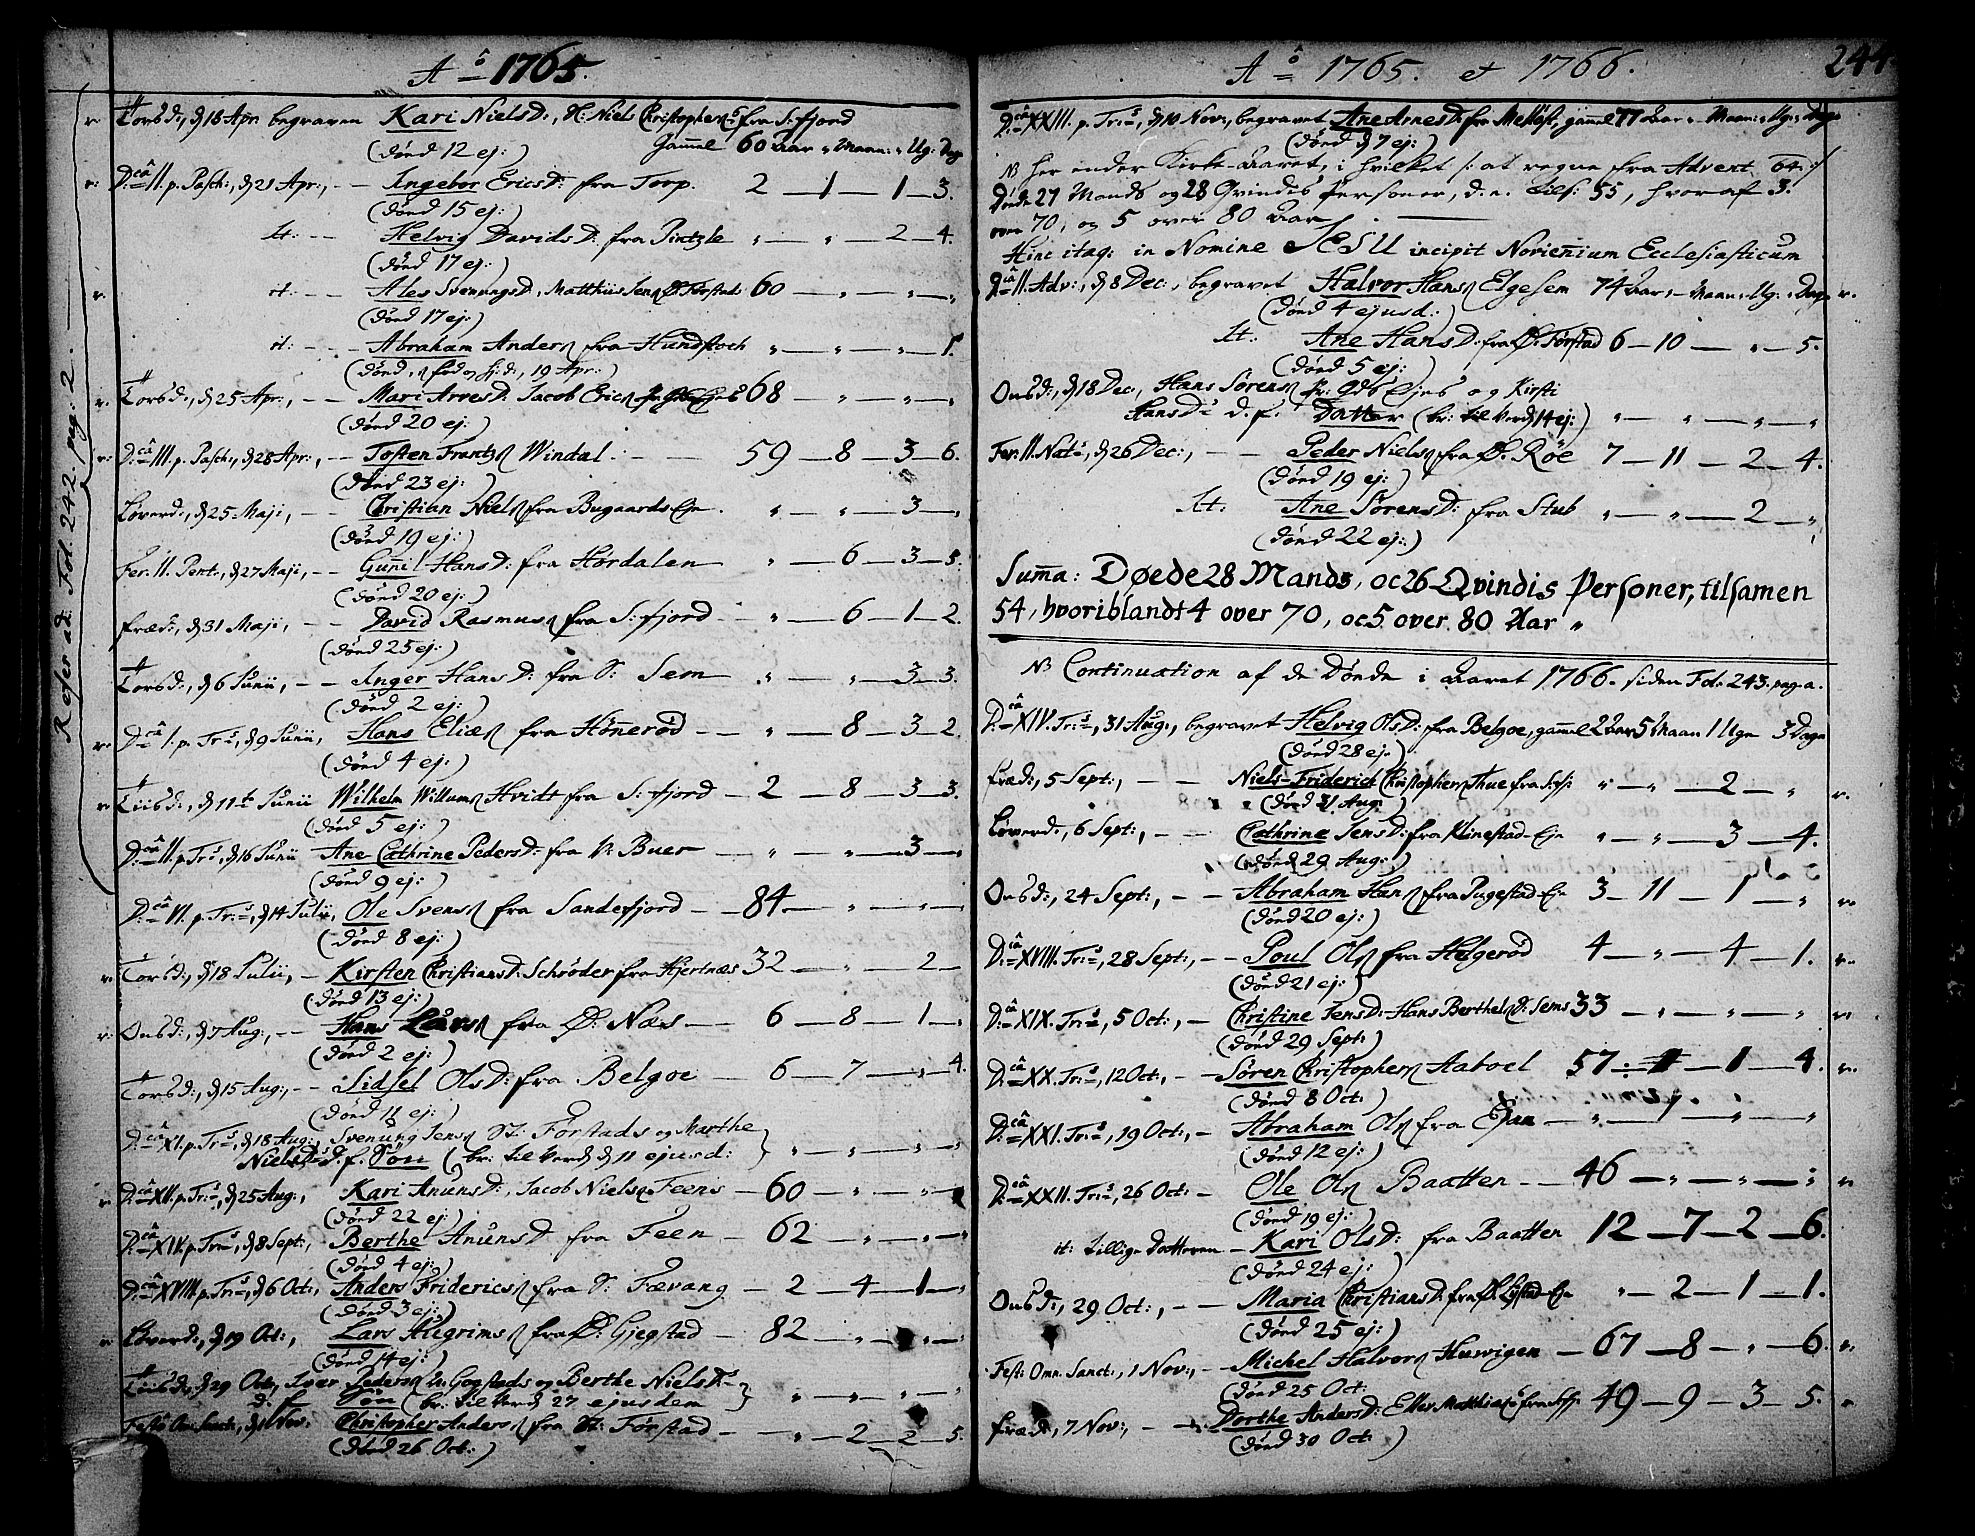 Aº 1765.
Torsd:, d 18 Apr. begraven Kari NielsD:, Sl: Niels Christophers: fra S:fjord
(død 12 ej:) Gammel 60 Aar " Maan: " Ug: " Dag
D:câ II. p. Pasch:, d 21 Apr:, - - Ingebor EricsD: fra Torp. 2 - 1 - 1 - 3.
(død 15 ej:)
it: - - Helvig DavidsD: fra Pintzle " - " - 2 - 4.
(død 17 ej:)
it: - - Ales SvenungsD, Matthiis Jens Ø: Førstad 60 - " - " - "
(død 17 ej:)
it: - - Abraham Anders fra Hundstoch " - " - " - 1.
(død, 19 Apr:)
Torsd:, d 25 Apr:, - - Mari ArvesD: Jacob Erics 68 - " - " - "
(død 20 ej:)
D:câ III. p. Pasch:, d 28 Apr:, - Tosten Frantzs Windal - 59 - 8 - 3 - 6.
(død 23 ej:)
Løverd:, d 25 Maji, - - Christian Niels fra Bugaards Eje. " - " - 3 - "
(død 19 ej:)
Fer. II. Pent:, d 27 Maji, - - Gunil HansD: fra Hørdalen " - 6 - 3 - 5.
(død 20 ej:)
Fræd:, d 31 Maji, - - David Rasmus fra S:fjord - " - 6 - 1 - 2.
(død 25 ej:)
Torsd:, d 6 Junii, - - Inger HansD: fra S: Sem " - " - 3 - 3.
(død 2 ej:)
D:câ I. p. Tr:, d 9 Junii, Hans Eliæs fra Hønnerød - " - 8 - 3 - 2.
(død 4 ej:)
Tiisd:, d 11te Junii Wilhelm Willums Hvidt fra S:fjord - 2 - 8 - 3 - 3.
(død 5 ej:)
D:câ II. p. Tr:, d 16 Junii Ane Cathrine PedersD: fra N: Buer - " - " - 3 - "
(død 9 ej:)
D:câ VI. p. Tr:, d 14 Julii, Ole Svens fra Sandefjord - 84 - " - " - "
(død 8 ej:)
Torsd:, d 18 Julii, - Kirsten ChristiansD: Schrøder fra Hjertnæs 32 - " - 2 - "
(død 13 ej:)
Onsd:, d 7 Aug:, - - Hans Lars fra Ø: Næs - 6 - 8 - 1 - "
(død 2 ej:)
Torsd:, d 15 Aug:, - - Sidsel OlsD: fra Belgoe - 6 - 7 - " - 4.
(død 11 ej:)
D:câ XI. p. Tr:, d 18 Aug:, Svenung Jens St: Førstads og Marthe
NielsD: d. f. Søn (br: til Verd d 11 ejusd:) " - " - " - "
D:câ XII. p. Tr:, d 25 Aug:, Kari AnunsD:, Jacob Niels Feens - 60 - " - " - "
(død 22 ej:)
D:câ XIV. p. Tr:, d 8 Sept:, Berthe AnunsD: fra Feen - 62 - " - " - "
(død 4 ej:)
D:câ XVIII. p. Tr:, d 6 Oct:, Anders Friderics fra S: Fævang - 2 - 4 - 1 - "
(død 3 ej:)
Løverd:, d 19 Oct:, Lars Hilgrims fra Ø: Gjegstad - 82 - " - " - "
(død 14 ej:)
Tiisd:, d 29 Oct., Iver Peders N: Gogstads og Berthe NielsD: -
d. f. Søn (br: til Verd 27 ejusdem) " - " - " - "
Festo Om: Sanct:, d 1 Nov. Christopher Anders fra St: Førstad - " - 2 - 2 - 5.
(død 26 Oct:)
Refer ad Fol. 242. pag: 2.
Aº 1765. et 1766. 244.
D:câ XXIII. p. Tr:, d 10 Nov:, begravet Ane ArnesD: fra Mellöst, gammel 77 Aar " Maan: " Ug: " Dag
(død d 7 ej:)
NB Her ender Kirke-Aaret, i hvilket /: at regne fra Advent 64 :/
Døde 27 Mands og 28 Qvindes Personer, d. e. tils: 55, hvoraf 3.
over 70, og 5 over 80 Aar.
Hinc itaq: in Nomine JESU incipit Novennium Ecclesiasticum
D:câ II. Adv:, d 8 Dec:, begravet Halvor Hans Elgesem 74 Aar, - Maan: " Ug: " Dag
(død 4 ejusd:)
it: Ane HansD: fra Ø: Førstad 6 - 10 - " - 5.
(død 5 ej:)
Onsd:, d 18 Dec, Hans Sørens Ejes og Kirsti
HansD: d. f. Datter (br: til Verd 14 ej:) " - " - " - "
Fer. II. Nat:, d 26 Dec:, - - Peder Niels fra Ø: Røe 7 - 11 - 2 - 4.
(død 19 ej:)
it: Ane SørensD: fra Stub " - " - 2 - "
(død 22 ej:)
Summa: Døede 28 Mands, oc 26 Qvindis Personer, tilsamen
54, hvoriblandt 4 over 70, oc 5 over 80 Aar "
NB Continuation af de Døde i Aaret 1766. siden Fol. 243. pag. a.
D:câ XIV. Tr:, 31 Aug:, begravet Helvig OlsD: fra Belgoe, gamel 2 Aar 5 Maan 1 Uge 3 Dage
(død 28 ej:)
Fræd:, 5 Sept:, - - Niels-Friderich Christophers Thue fra S:fj: " - " - 2 - "
(død 31 Aug:)
Løverd:, 6 Sept:, - - Cathrine JensD: fra Klinestad-Eje " - " - 3 - 4.
(død 29 Aug:)
Onsd:, 24 Sept:, - - Abraham Hans fra Pugestad-Eje 3 - 11 - 1 - "
(død 20 ej:)
D:câ XVIII. Tr:, 28 Sept:, - Poul Ols fra Helgerød 4 - " - 4 - 1.
(død 21 ej:)
D:câ XIX. Tr:, 5 Oct:, - Christine JensD: Hans Berthels Ø: Sems 33 - " - " - "
(død 29 Sept:)
D:câ XX. Tr:, 12 Oct:, - Søren Christophers Aaboel 57 - 1 - 1 - 4.
(død 8 Oct:)
D:câ XXI. Tr:, 19 Oct:, - Abraham Ols fra Ejan - " - 1 - " - "
(død 12 ej:)
D:câ XXII. Tr:, 26 Oct: - Ole Ols Baatten - - 46 - " - " - "
(død 19 ej:)
it: tillige Datteren - Kari OlsD: fra Baatten 12 - 7 - 2 - 6.
(død 24 ej:)
Onsd:, 29 Oct:, - - Maria ChristiansD: fra Ø: -Eje " - 2 - 1 - 1.
(død 25 ej:)
Fest: Omn. Sanct:, 1 Nov:, - Michel Halvors Huvigen - 67 - 8 - " - 6.
(død 25 Oct:)
Fræd:, 7 Nov:, - - Dorthe AndersD: fra S:fj: 49 - 9 - 3 - 5.
(død 30 Oct:)